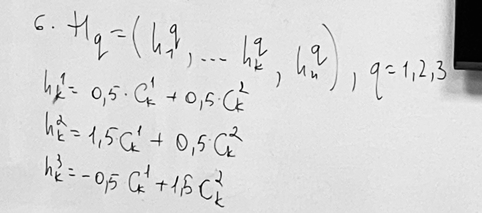 6. H_q = (h_1^q, ... h_k^q, h_n^q), q = 1,2,3
h_k^1 = 0,5 · C_k^1 + 0,5 · C_k^2
h_k^2 = 1,5 C_k^1 + 0,5 · C_k^2
h_k^3 = -0,5 C_k^1 + 1,5 C_k^2